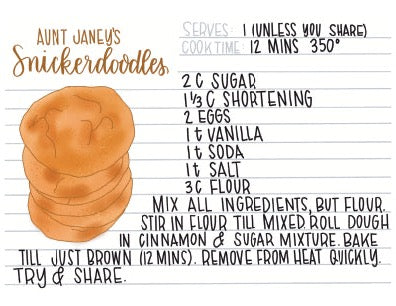 AUNT JANEY'S
Snickerdoodles
SERVES: 1 (UNLESS YOU SHARE)
COOKTIME: 12 MINS 350°
2 C SUGAR
1 1/3 C SHORTENING
2 EGGS
1 t VANILLA
1 t SODA
1 t SALT
3C FLOUR
MIX ALL INGREDIENTS, BUT FLOUR.
STIR IN FLOUR TILL MIXED. ROLL DOUGH
IN CINNAMON & SUGAR MIXTURE. BAKE
TILL JUST BROWN (12 MINS). REMOVE FROM HEAT QUICKLY.
TRY & SHARE.